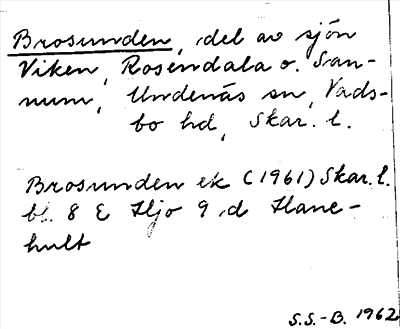 Brosunden, del av sjön
Viken, Rosendala o. San-
num, Undenäs sn, Vads-
bo hd, Skar. l.
Brosunden ek (1961) Skar. l.
bl. 8 E Hjo 9 d Hane-
hult
S.S.-B. 1962